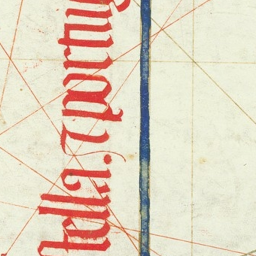 tella. ⁊ portug